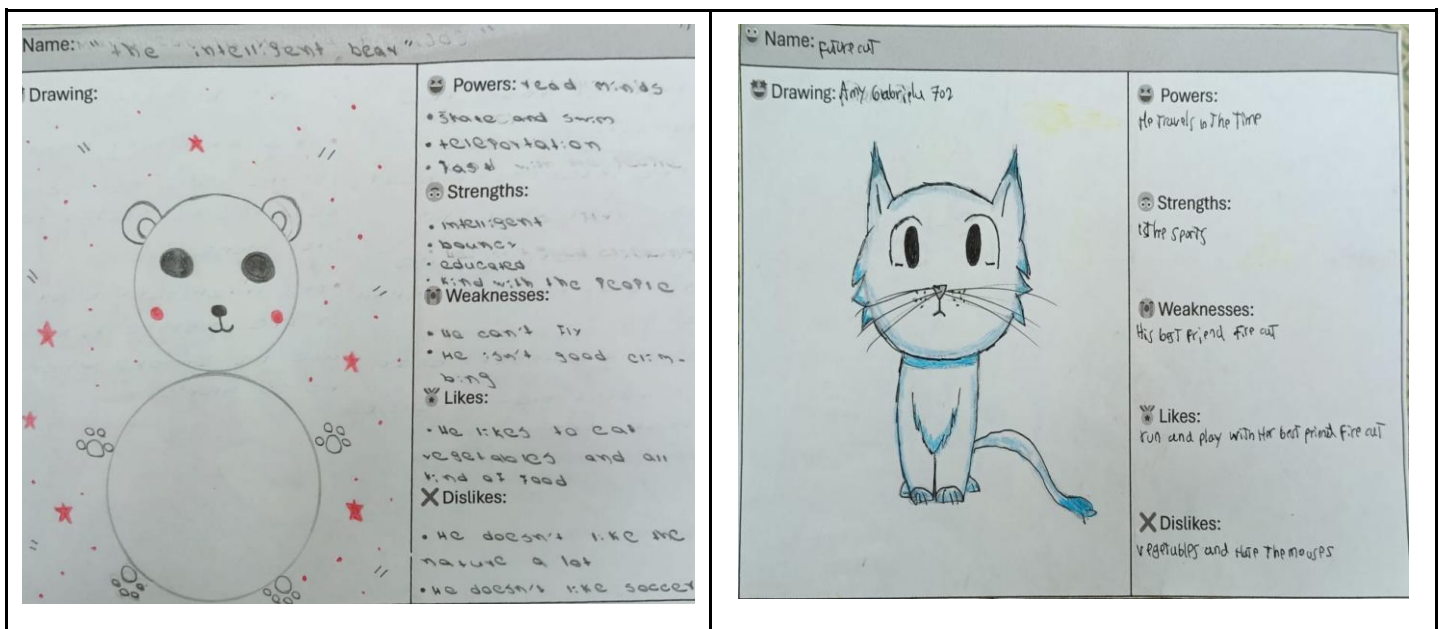 Name: "the intelligent bear"
Drawing:
Powers: read minds
• Skate and swim
• teleportation
• fast
Strengths:
• intelligent
• bouncy
• educated
• kind with the people
Weaknesses:
• He can't fly
• He isn't good clim-
bing
Likes:
• He likes to eat
vegetables and all
kind of food
Dislikes:
• He doesn't like the
nature a lot
• He doesn't like soccer
Name: future cat
Drawing: Amy Gabriela 702
Powers:
He Travels in The Time
Strengths:
The sports
Weaknesses:
His best Friend Fire cat
Likes:
run and play with Her best friend Fire cat
Dislikes:
vegetables and Hate The mouses